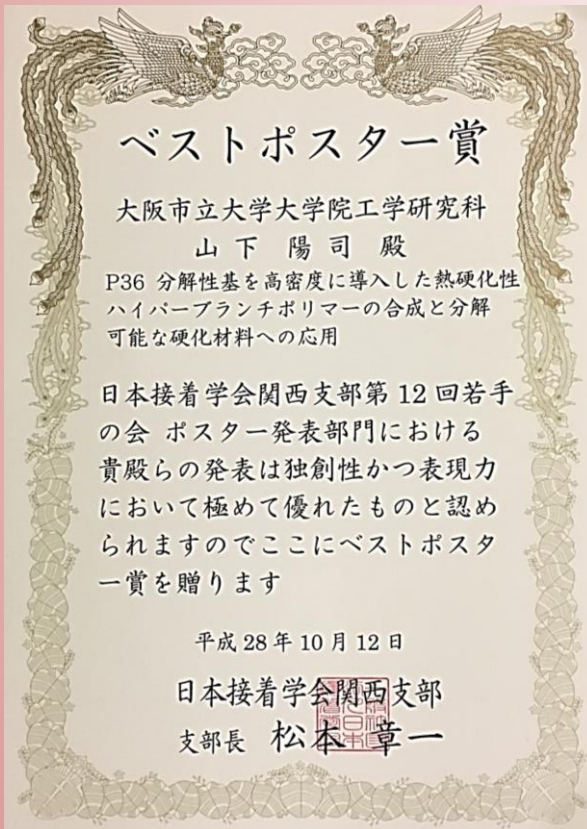 ベストポスター賞
大阪市立大学大学院工学研究科
山下 陽司 殿
P36 分解性基を高密度に導入した熱硬化性
ハイパーブランチポリマーの合成と分解
可能な硬化材料への応用
日本接着学会関西支部第12回若手
の会 ポスター発表部門における
貴殿らの発表は独創性かつ表現力
において極めて優れたものと認め
られますのでここにベストポスタ
ー賞を贈ります
平成28年10月12日
日本接着学会関西支部
支部長 松本 章一